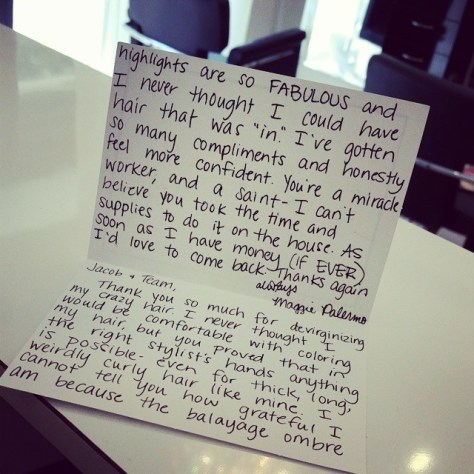 Jacob + Team,
Thank you so much for devirginizing
my crazy hair. I never thought I
would be comfortable with coloring
my hair, but you proved that in
the right stylist's hands anything
is possible- even for thick, long,
weirdly curly hair like mine. I
cannot tell you how grateful I
am because the balayage ombre
highlights are so FABULOUS and
I never thought I could have
hair that was "in." I've gotten
so many compliments and honestly
feel more confident. You're a miracle
worker, and a saint- I can't
believe you took the time and
supplies to do it on the house. As
soon as I have money (if EVER)
I'd love to come back. Thanks again
always
Maggie Palermo